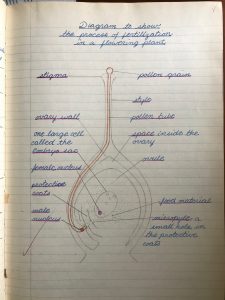 Diagram to show
the process of fertilization
in a flowering plant.
stigma
pollen grain
style
ovary wall
pollen tube
one large cell
called the
Embryo sac
space inside the
ovary
ovule
female nucleus
protective
coats
food material
male
nucleus
micropyle a
small hole in
the protective
coats